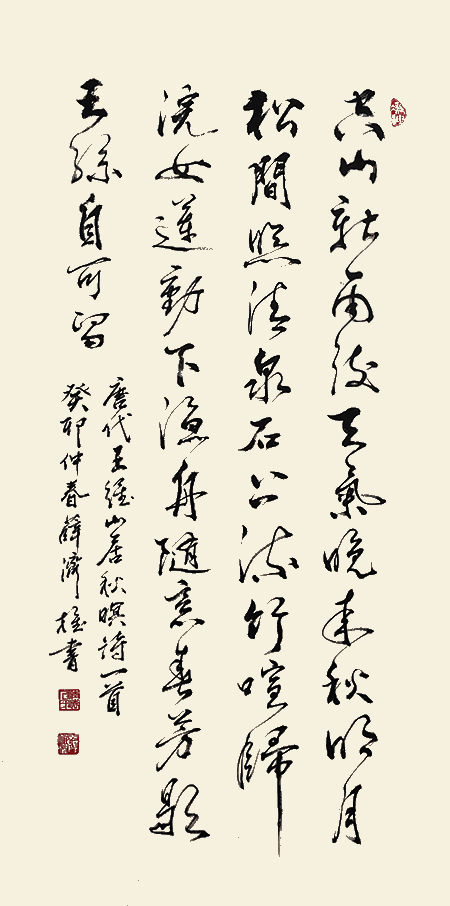 空山新雨後天氣晚来秋明月
松間照清泉石上流竹喧歸
浣女蓮動下漁舟隨意春芳歇
王孫自可留
唐代王維山居秋暝詩一首
癸卯仲春薛濟書